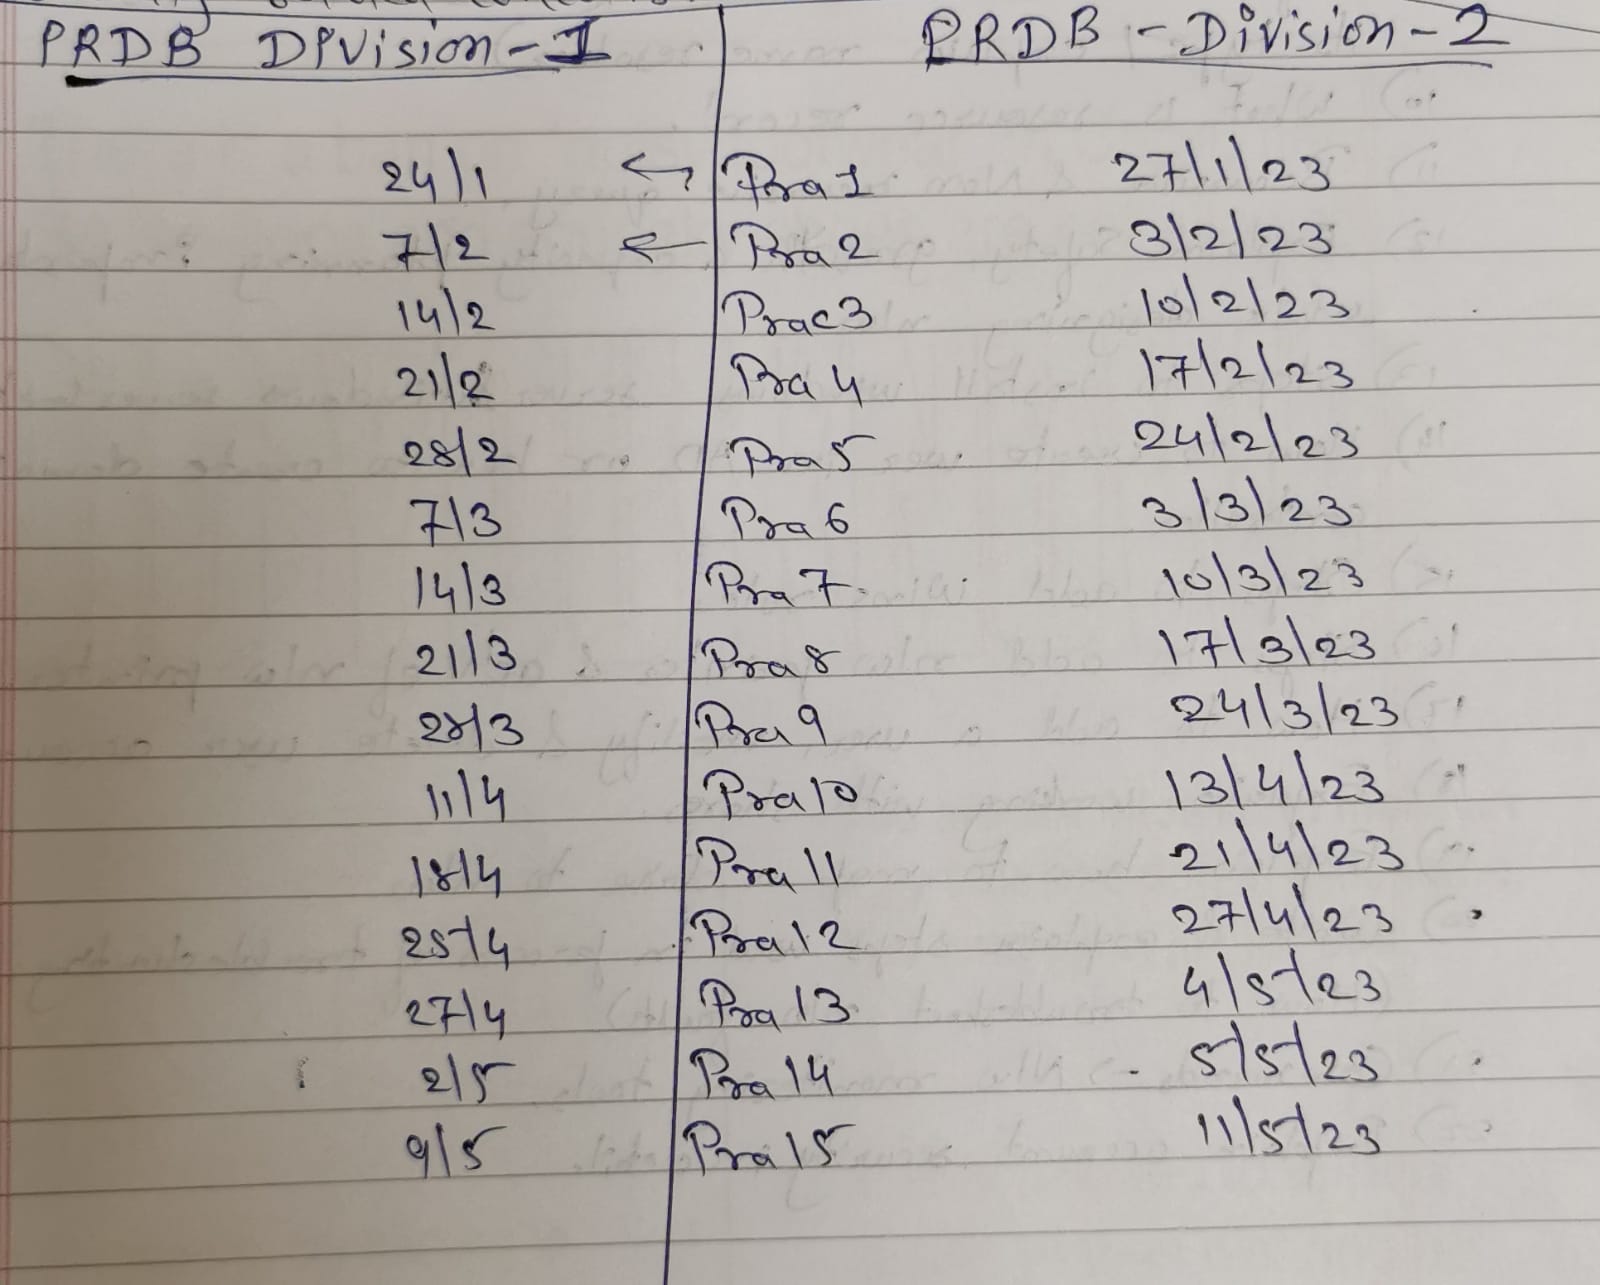 PRDB Division-1 PRDB - Division-2
24/1 ← Pra 1 27/1/23
7/2 ← Pra 2 3/2/23
14/2 Prac 3 10/2/23
21/2 Pra 4 17/2/23
28/2 Pra 5 24/2/23
7/3 Pra 6 3/3/23
14/3 Pra 7 10/3/23
21/3 Pra 8 17/3/23
28/3 Pra 9 24/3/23
11/4 Pra 10 13/4/23
18/4 Pra 11 21/4/23
25/4 Pra 12 27/4/23
27/4 Pra 13 4/5/23
2/5 Pra 14 5/5/23
9/5 Pra 15 11/5/23